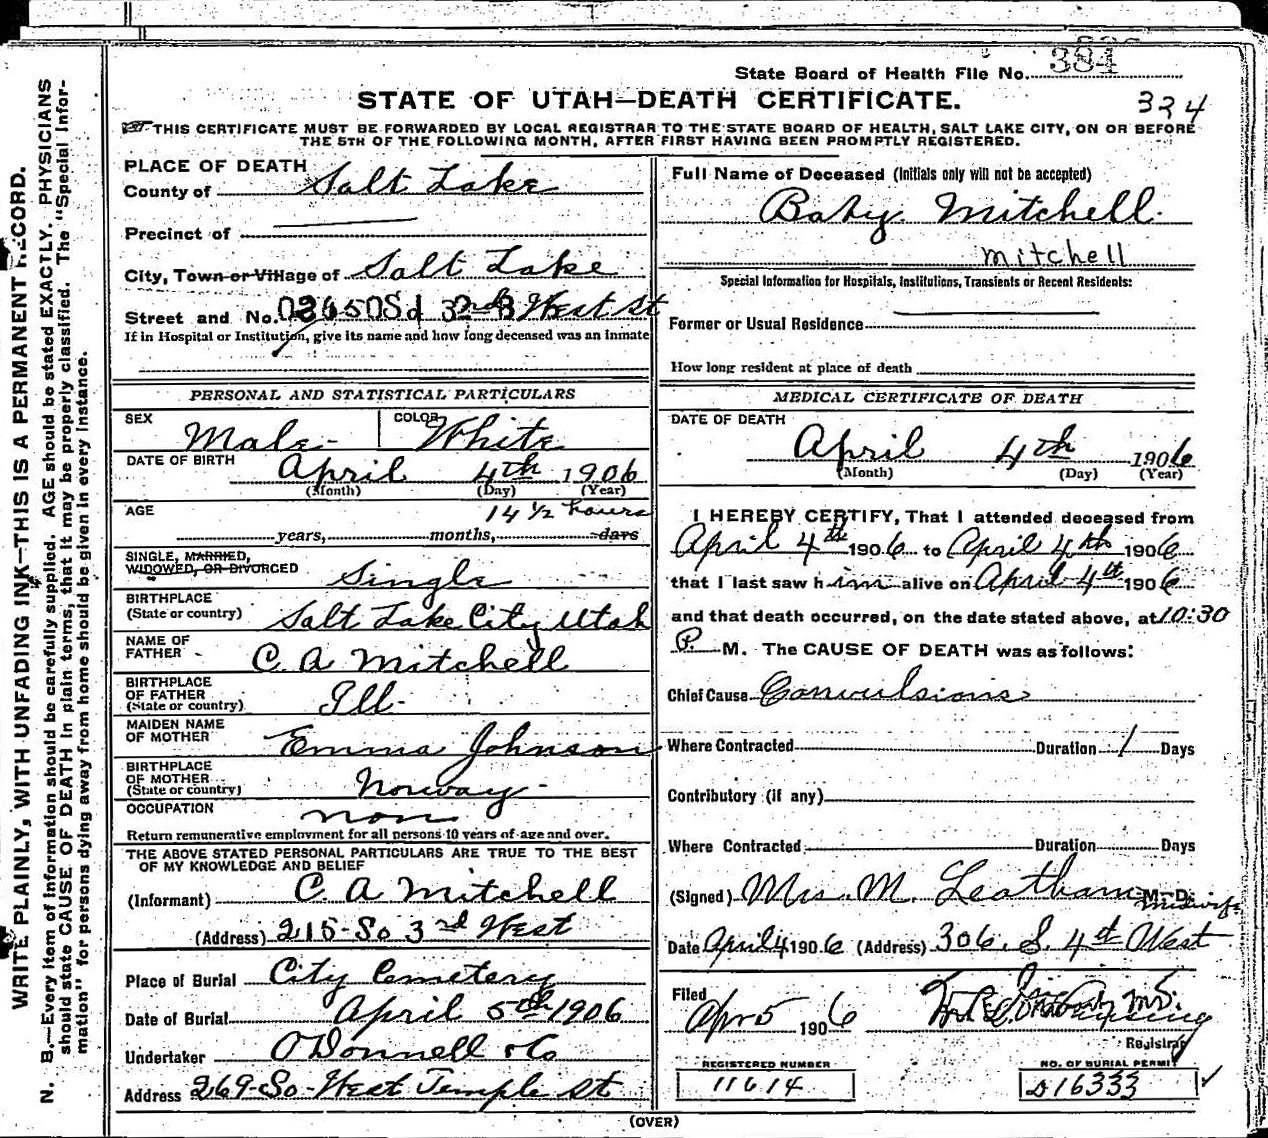 State Board of Health File No. 384
STATE OF UTAH—DEATH CERTIFICATE.
334
THIS CERTIFICATE MUST BE FORWARDED BY LOCAL REGISTRAR TO THE STATE BOARD OF HEALTH, SALT LAKE CITY, ON OR BEFORE
THE 5TH OF THE FOLLOWING MONTH, AFTER FIRST HAVING BEEN PROMPTLY REGISTERED.
WRITE PLAINLY, WITH UNFADING INK—THIS IS A PERMANENT RECORD.
N. B.—Every item of information should be carefully supplied. AGE should be stated EXACTLY. PHYSICIANS
should state CAUSE OF DEATH in plain terms, that it may be properly classified. The "Special Infor-
mation" for persons dying away from home should be given in every instance.
PLACE OF DEATH
County of Salt Lake
Precinct of
City, Town or Village of Salt Lake
Street and No. West St
If in Hospital or Institution, give its name and how long deceased was an inmate
PERSONAL AND STATISTICAL PARTICULARS
SEX Male COLOR White
DATE OF BIRTH April 4th 1906
(Month) (Day) (Year)
AGE 14 1/2 hours
years, months, days
SINGLE, MARRIED,
WIDOWED, OR DIVORCED Single
BIRTHPLACE
(State or country) Salt Lake City Utah
NAME OF
FATHER C. A Mitchell
BIRTHPLACE
OF FATHER
(State or country) Ill.
MAIDEN NAME
OF MOTHER Emma Johnson
BIRTHPLACE
OF MOTHER
(State or country) Norway
OCCUPATION non
Return remunerative employment for all persons 10 years of age and over.
THE ABOVE STATED PERSONAL PARTICULARS ARE TRUE TO THE BEST
OF MY KNOWLEDGE AND BELIEF
(Informant) C. A Mitchell
(Address) 215-So 3rd West
Place of Burial City Cemetery
Date of Burial April 5th 1906
Undertaker O'Donnell & Co
Address 269-So-West Temple St
Full Name of Deceased (Initials only will not be accepted)
Baby Mitchell
Mitchell
Special Information for Hospitals, Institutions, Transients or Recent Residents:
Former or Usual Residence
How long resident at place of death
MEDICAL CERTIFICATE OF DEATH
DATE OF DEATH
April 4th 1906
(Month) (Day) (Year)
I HEREBY CERTIFY, That I attended deceased from
April 4th 1906 to April 4th 1906
that I last saw him alive on April 4th 1906
and that death occurred, on the date stated above, at 10:30
P. M. The CAUSE OF DEATH was as follows:
Chief Cause Convulsions
Where Contracted Duration 1 Days
Contributory (if any)
Where Contracted Duration Days
(Signed) Mrs. M. Leatham M. D.
midwife
Date April 4 1906 (Address) 306. S. 4st West
Filed
Apr 5 1906
Registrar
REGISTERED NUMBER
11614
NO. OF BURIAL PERMIT
D16333
(OVER)